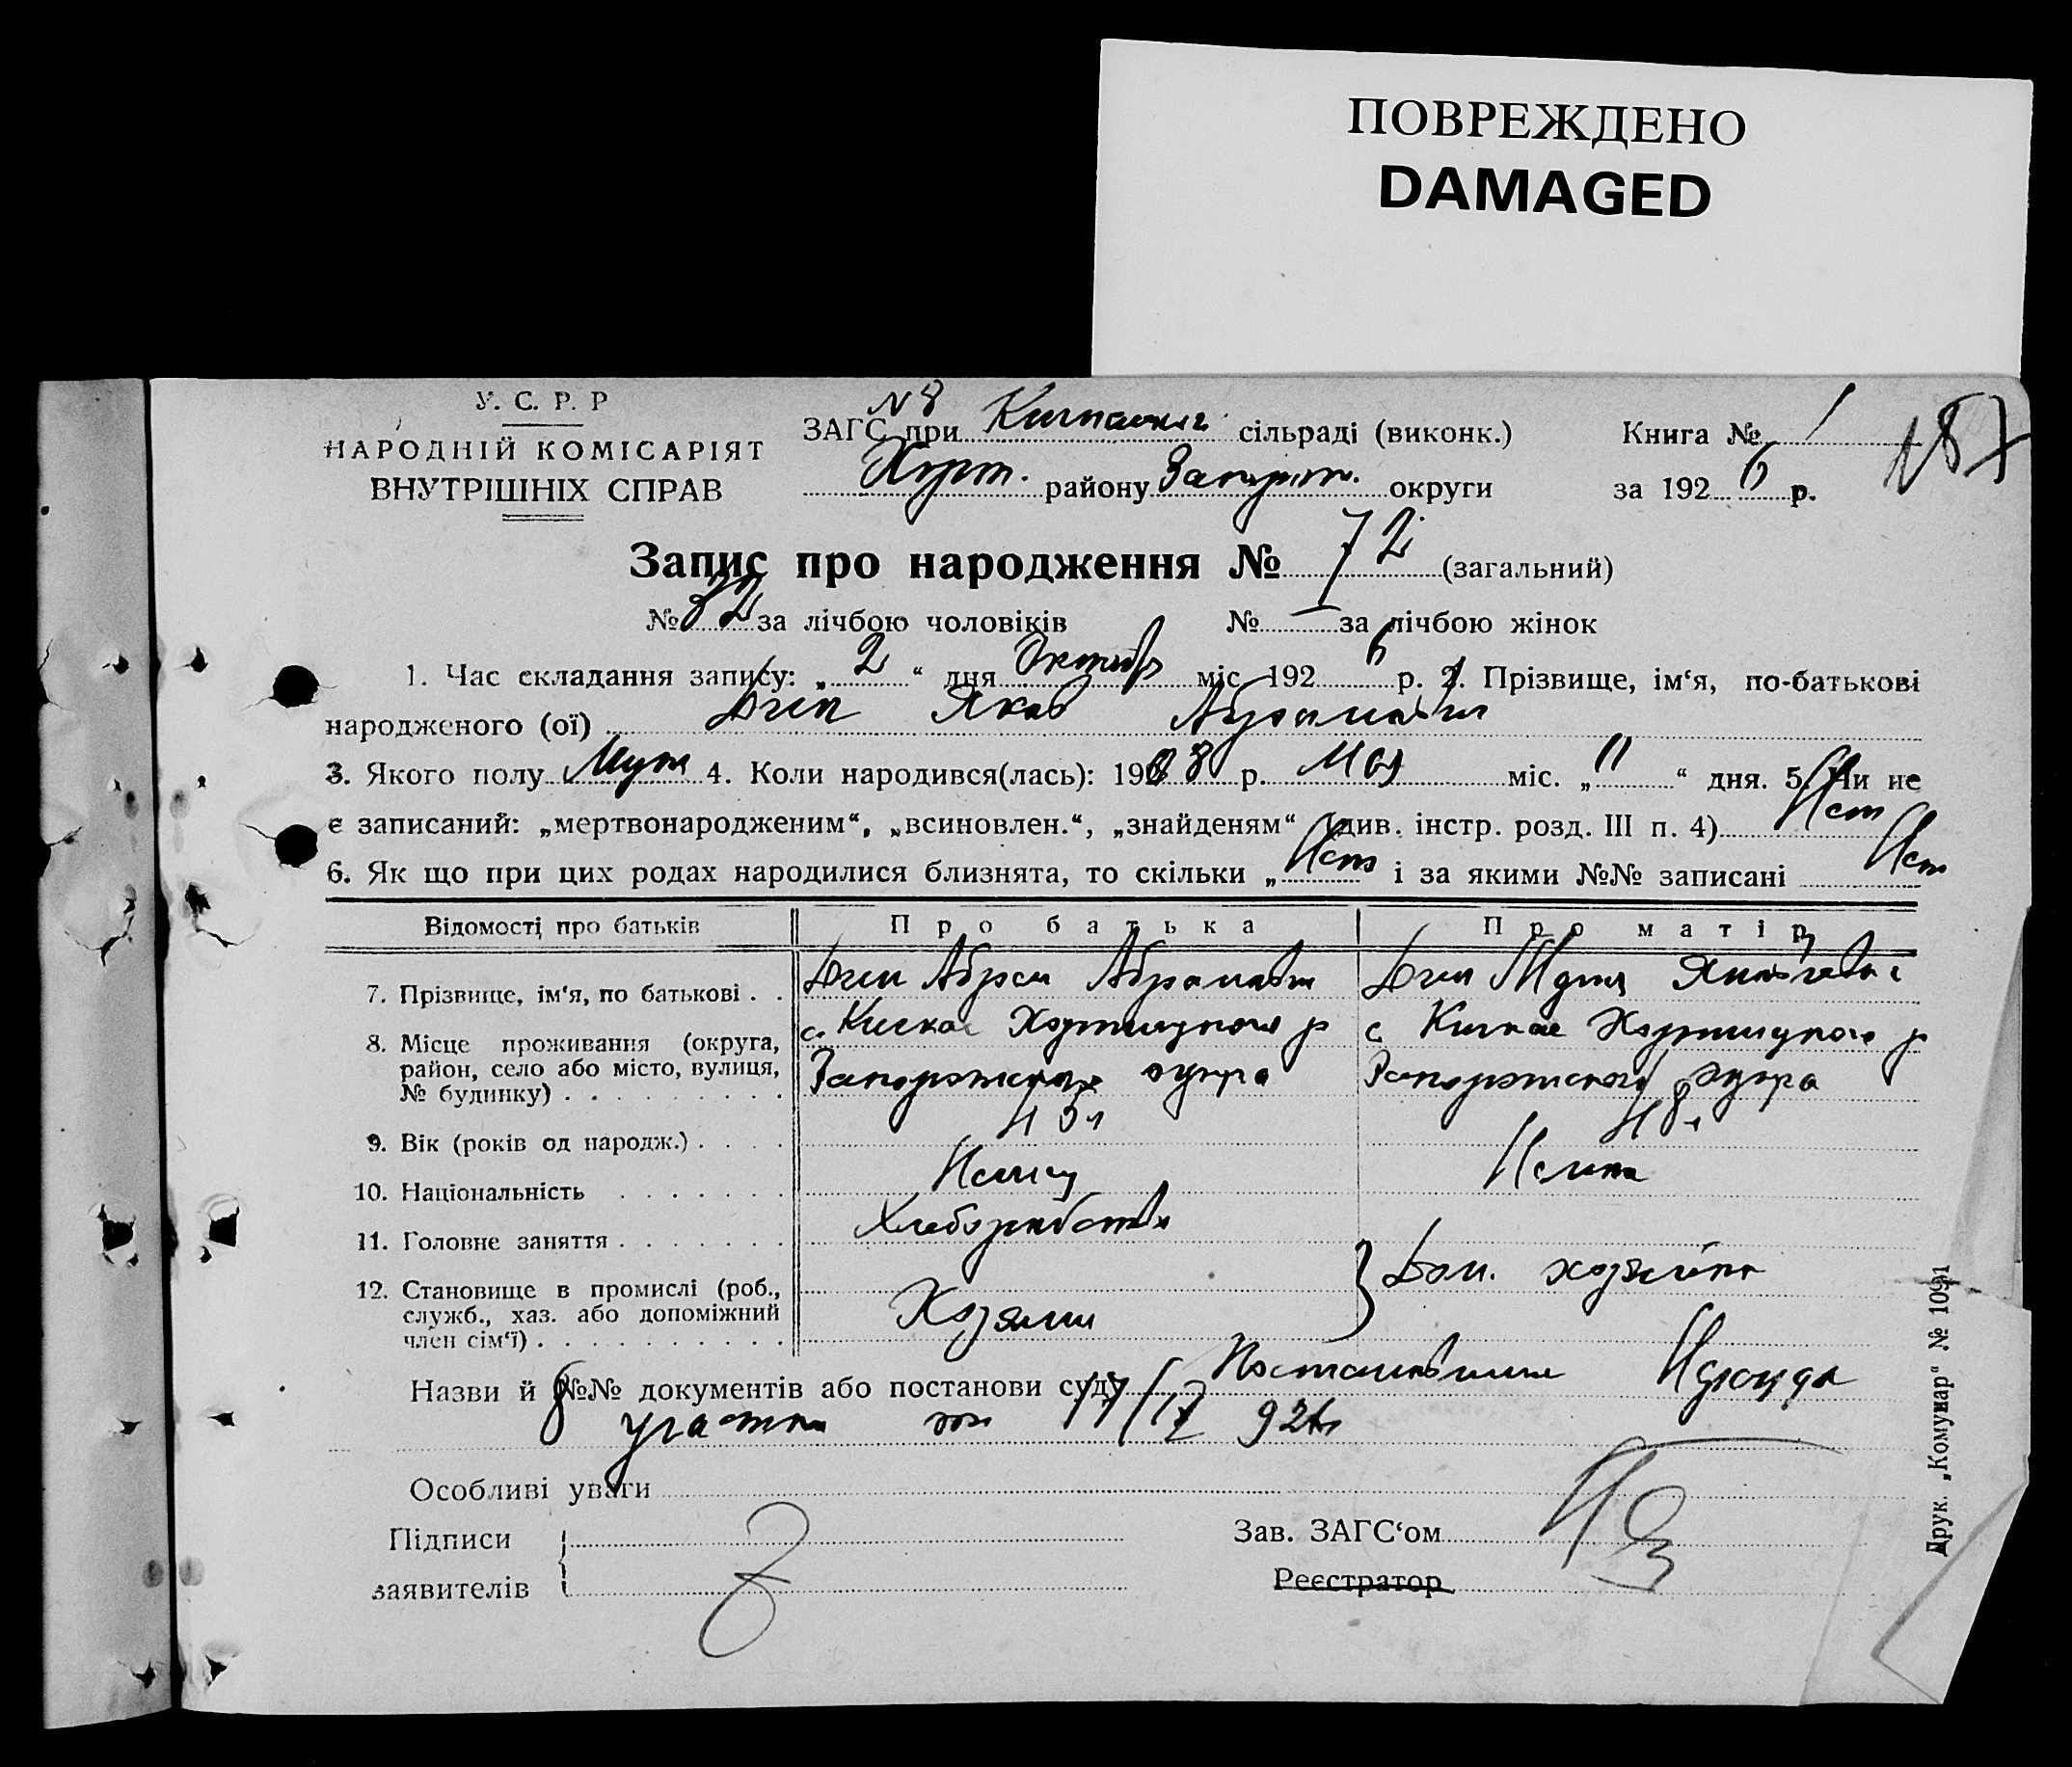 ПОВРЕЖДЕНО
DAMAGED
У. С. Р. Р
НАРОДНІЙ КОМІСАРІЯТ
ВНУТРІШНІХ СПРАВ
N 8
ЗАГС при сільраді (виконк.)
Хорт. району Запорож. округи
Книга № 1
за 1926 р.
187
Запис про народження № 72 (загальний)
№ 32 за лічбою чоловіків № — за лічбою жінок
1. Час складання запису: „2“ дня Октября міс. 1926 р. 2. Прізвище, ім‘я, по-батькові
народженого (ої) Дик Яков Абрамович
3. Якого полу Муж 4. Коли народився(лась): 1908 р. Мая міс. „11“ дня. 5. Чи не
є записаний: „мертвонародженим“, „всиновлен.“, „знайденям“ (див. інстр. розд. III п. 4) Нет
6. Як що при цих родах народилися близнята, то скільки „Нет і за якими №№ записані Нет
Відомості про батьків Про батька Про матір
7. Прізвище, ім‘я, по батькові . . Дик Абрам Абрамович Дик Яковлевна
8. Місце проживання (округа, район, село або місто, вулиця, № будинку) . . . . . . . . .
с. Кичкас Хортицкого р с Кичкас Хортицкого р
Запорожского округа Запорожского округа
9. Вік (років од народж.) . . . . 48л
10. Національність . . . . . . . Немец Немка
11. Головне заняття . . . . . . . Хлебопашество
12. Становище в промислі (роб., служб., хаз. або допоміжний член сім‘ї) . . . . . . . . . .
Хозяин Дом. хозяйка
Назви й №№ документів або постанови суду Постановление Нарсуда
8 участка от 926г
Особливі уваги
Підписи
заявителів
Зав. ЗАГС‘ом
Реєстратор
Друк. „Комунар“ № 1091